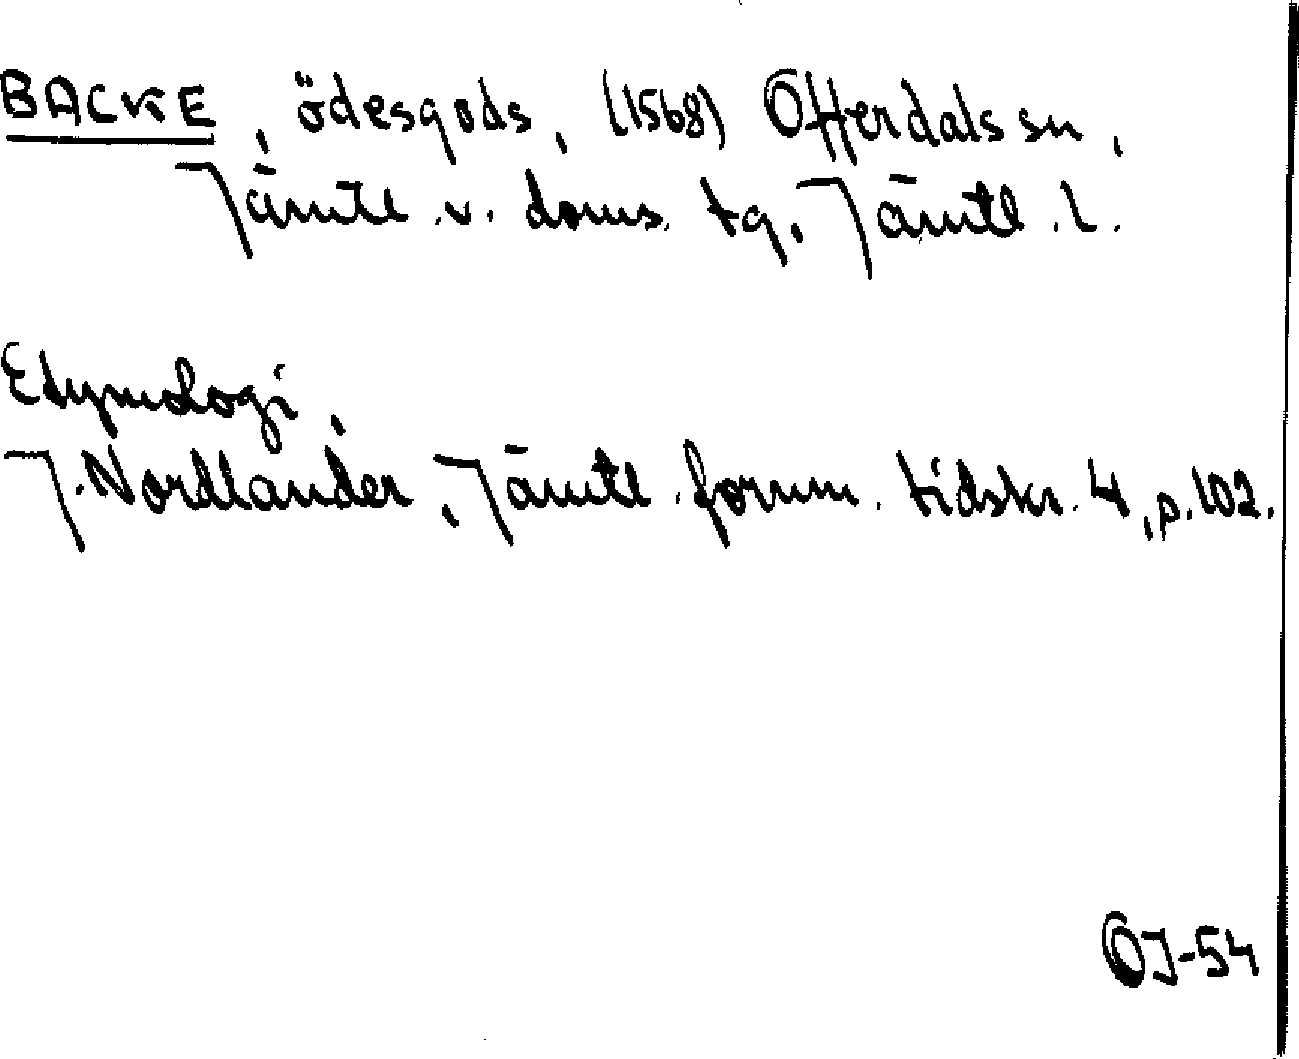 BACKE, ödesgods, (1568) Offerdals sn,
Jämtl. v. doms. tg, Jämtl. l.
Etymologi,
J. Nordlander, Jämtl. fornm. tidskr. 4, s. 102.
OJ-54